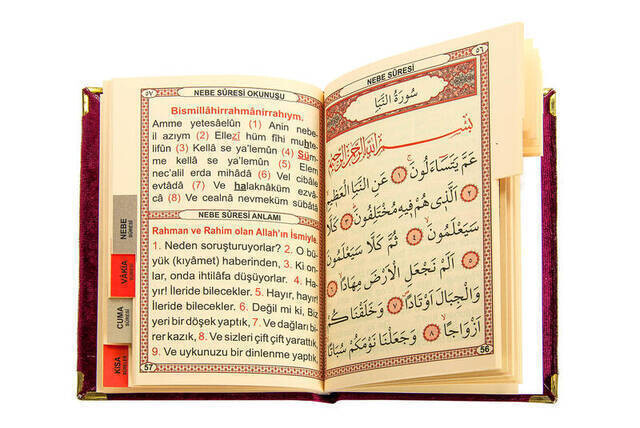 ٥٦
NEBE SÛRESİ
سُورَةُ النَّبَأِ
بِسْمِ اللّٰهِ الرَّحْمٰنِ الرَّحِيمِ
عَمَّ يَتَسَاءَلُونَ ١ عَنِ النَّبَاِ الْعَظِيمِ
اَلَّذِي هُمْ فِيهِ مُخْتَلِفُونَ ٣ كَلَّا
سَيَعْلَمُونَ ٤ ثُمَّ كَلَّا سَيَعْلَمُونَ
٥ اَلَمْ نَجْعَلِ الْاَرْضَ مِهَادًا ٦
وَالْجِبَالَ اَوْتَادًا ٧ وَخَلَقْنَاكُمْ
اَزْوَاجًا ٨ وَجَعَلْنَا نَوْمَكُمْ سُبَاتًا
56
٥٧
NEBE SÛRESİ OKUNUŞU
Bismillâhirrahmânirrahıym.
Amme yetesaêlûn (1) Anin nebe-
il azıym (2) Ellezî hüm fîhi muhte-
lifûn (3) Kellâ se ya'lemûn (4) Süm-
me kellâ se ya'lemûn (5) Elem
nec'alil erda mihâdâ (6) Vel cibâle
evtâdâ (7) Ve halaknâküm ezvâ-
câ (8) Ve cealnâ nevmeküm sübâtâ
NEBE SÛRESİ ANLAMI
Rahman ve Rahim olan Allah'ın İsmiyle.
1. Neden soruşturuyorlar? 2. O bü-
yük (kıyâmet) haberinden, 3. Ki on-
lar, onda ihtilâfa düşüyorlar. 4. Ha-
yır! İleride bilecekler. 5. Hayır, hayır!
İleride bilecekler. 6. Değil mi ki, Biz
yeri bir döşek yaptık, 7. Ve dağları bi-
rer kazık, 8. Ve sizleri çift çift yarattık,
9. Ve uykunuzu bir dinlenme yaptık,
57
NEBE
SÛRESİ
VÂKIA
SÛRESİ
CUMA
SÛRESİ
KISA